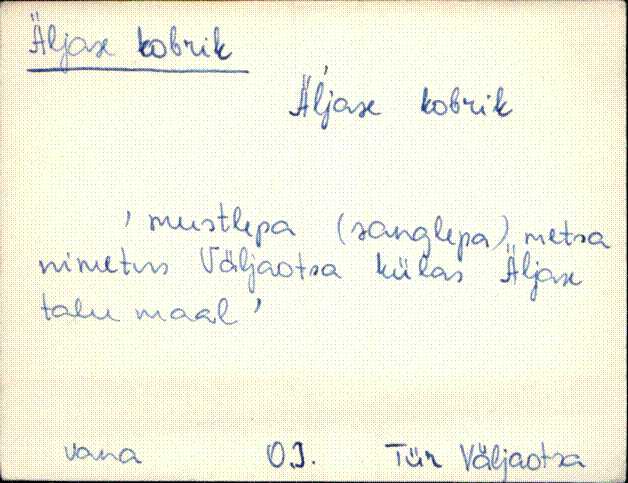 Äljase kobrik
Äljase kobrik
' mustlepa (sanglepa) metsa
nimetus Väljaotsa külas Äljase
talu maal '
vana O.J. Tür Väljaotsa